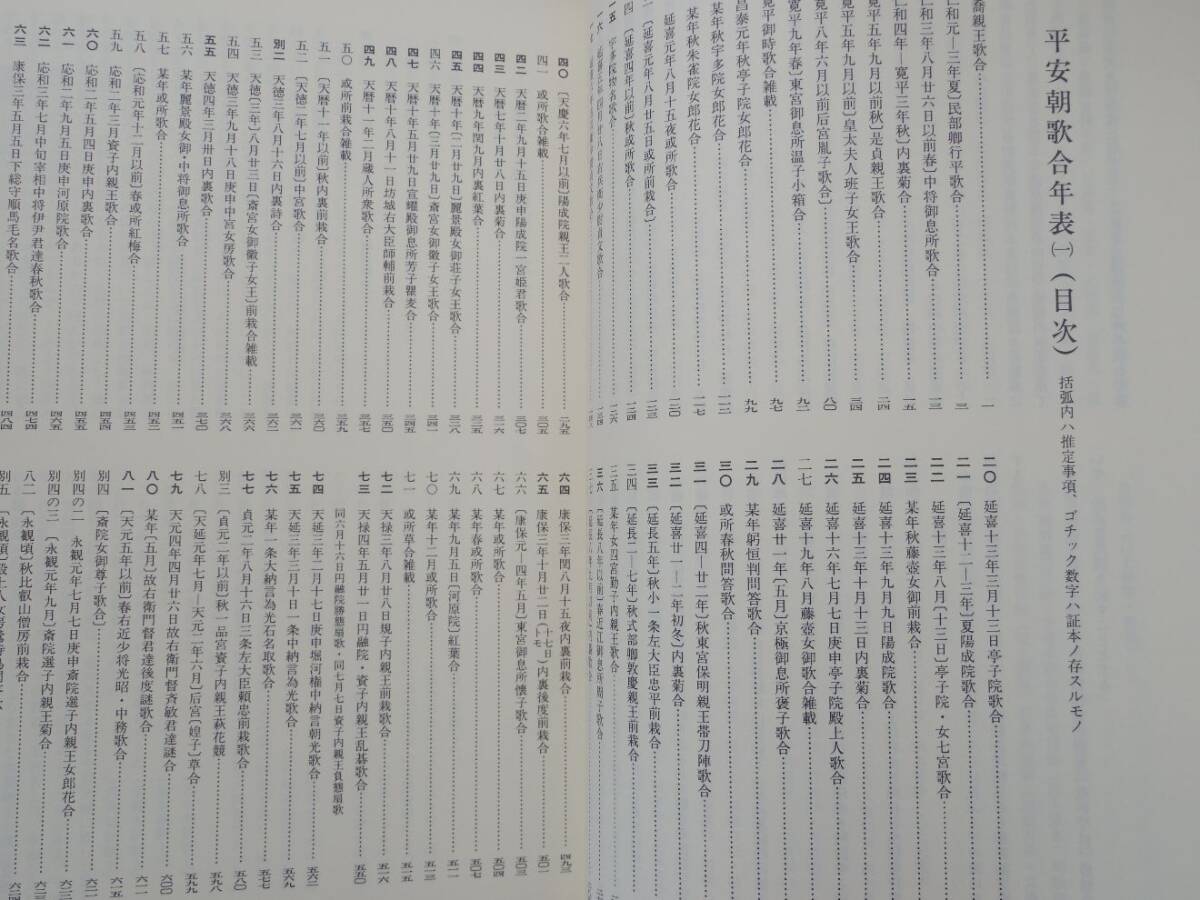 平安朝歌合年表㈠（目次）
括弧内ハ推定事項、ゴチック数字ハ証本ノ存スルモノ
喬親王歌合 一
仁和元―三年夏〕民部卿行平歌合 三
仁和三年八月廿六日以前春〕中将御息所歌合 一三
仁和四年―寛平三年秋〕内裏菊合 一五
寛平五年九月以前秋〕是貞親王歌合 二四
寛平五年九月以前〕皇太夫人班子女王歌合 三四
寛平八年六月以前后宮胤子歌合〕 八〇
寛平九年春〕東宮御息所温子小箱合 九二
寛平御時歌合雑載 九七
昌泰元年秋亭子院女郎花合 九九
某年秋宇多院女郎花合 一一二
某年秋朱雀院女郎花合 一一七
延喜元年八月十五夜或所歌合 一二〇
〔延喜元年八月廿五日或所前栽合〕 一二三
〔延喜四年以前〕秋或所歌合 一二四
二〇 延喜十三年三月十三日亭子院歌合
二一 〔延喜十二―三年〕夏陽成院歌合
二二 延喜十三年八月〔十三日〕亭子院・女七宮歌合
二三 某年秋藤壺女御前栽合
二四 延喜十三年九月九日陽成院歌合
二五 延喜十三年十月十三日内裏菊合
二六 延喜十六年七月七日庚申亭子院殿上人歌合
二七 延喜十九年八月藤壺女御歌合雑載
二八 延喜廿一年〔五月〕京極御息所褒子歌合
二九 某年躬恒判問答歌合
三〇 或所春秋問答歌合
三一 〔延喜四―廿二年〕秋東宮保明親王帯刀陣歌合
三二 〔延喜廿一―二年初冬〕内裏菊合
三三 〔延長五年〕秋小一条左大臣忠平前栽合
三四 〔延長二―七年〕秋式部卿敦慶親王前栽合
三五 某年女四宮勤子内親王歌合
四〇 〔天慶六年七月以前〕陽成院親王二人歌合 二九五
四一 或所歌合雑載 三〇五
四二 天暦二年九月十五日庚申陽成院一宮姫君歌合 三〇七
四三 天暦七年十月廿八日内裏菊合 三一六
四四 天暦九年閏九月内裏紅葉合
四五 天暦十年〔二月廿九日〕麗景殿女御荘子女王歌合 三二八
四六 天暦十年〔三月廿九日〕斎宮女御徽子女王歌合 三四一
四七 天暦十年五月廿九日宣耀殿御息所芳子瞿麦合 三四五
四八 天暦十年八月十一日坊城右大臣師輔前栽合
四九 天暦十一年二月蔵人所衆歌合 三五七
五〇 或所前栽合雑載 三五九
五一 〔天暦十一年以前〕秋内裏前栽合 三六〇
五二 〔天徳二年七月以前〕中宮歌合 三六一
別二 天徳三年八月十六日内裏詩合 三六二
五三 天徳〔三年〕八月廿三日〔斎宮女御徽子女王〕前栽合雑載 三六六
五四 天徳三年九月十八日庚申中宮女房歌合 三六八
五五 天徳四年三月卅日内裏歌合 三七〇
五六 某年麗景殿女御・中将御息所歌合 四五一
五七 某年秋或所歌合
五八 〔応和元年十二月以前〕春或所紅梅合 四五三
五九 応和二年三月資子内親王歌合 四五四
六〇 応和二年五月四日庚申内裏歌合 四五五
六一 応和二年九月五日庚申河原院歌合 四六五
六二 応和三年七月中旬宰相中将伊尹君達春秋歌合 四七四
六三 康保三年五月五日下総守順馬毛名歌合 四八四
六四 康保三年閏八月十五夜内裏前栽合 四九三
六五 康保三年十月廿二日（十七日トモ）内裏後度前栽合 五〇一
六六 〔康保元―四年五月〕東宮御息所懐子歌合 五〇三
六七 某年秋或所歌合 五〇四
六八 某年春或所歌合 五〇七
六九 某年九月五日〔河原院〕紅葉合 五一一
七〇 某年十二月或所歌合 五一三
七一 或所草合雑載 五一五
七二 天禄三年八月廿八日規子内親王前栽歌合 五一六
七三 天禄四年五月廿一日円融院・資子内親王乱碁歌合 五五〇
同六月十六日円融院勝態扇歌・同七月七日資子内親王負態扇歌
七四 天延二年二月十七日庚申堀河権中納言朝光歌合 五六二
七五 天延三年三月十日一条中納言為光歌合 五六九
七六 某年一条大納言為光石名取歌合 五七七
七七 貞元二年八月十六日三条左大臣頼忠前栽歌合 五八〇
別三 〔貞元二年以前〕秋一品宮資子内親王萩花競 五九八
七八 〔天延元年七月―天元二年六月〕后宮〔媓子〕草合 五九九
七九 天元四年四月廿六日故右衛門督斉敏君達謎合 六〇〇
八〇 某年〔五月〕故右衛門督君達後度謎歌合 六一一
八一 〔天元五年以前〕春右近少将光昭・中務歌合 六一五
別四 〔斎院女御尊子歌合〕 六二一
別四の二 永観元年七月七日庚申斎院選子内親王女郎花合 六二二
別四の三 〔永観元年九月〕斎院選子内親王菊合 六二三
八二 〔永観頃〕秋比叡山僧房前栽合